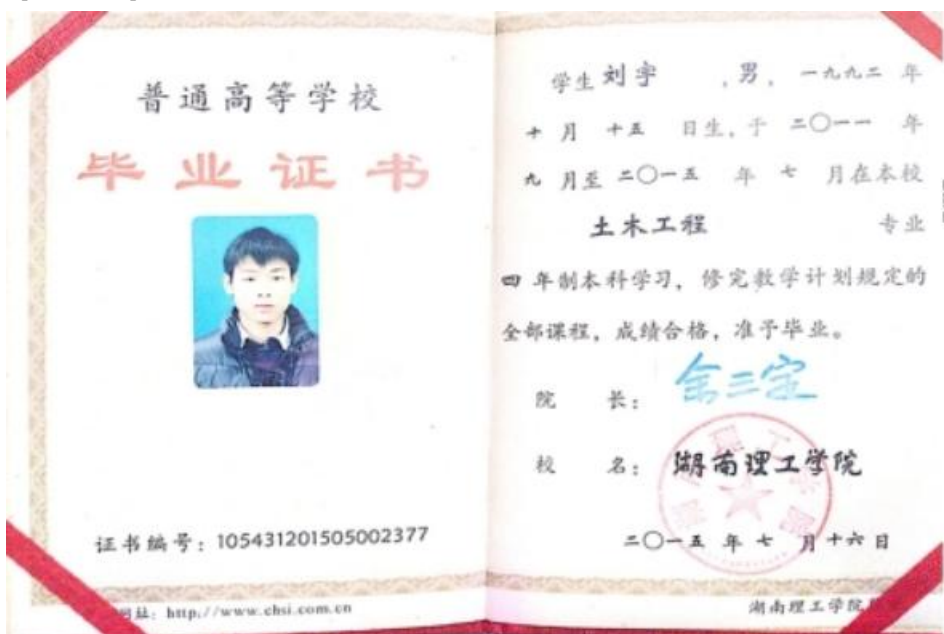 普通高等学校
毕业证书
证书编号：105431201505002377
网址：http://www.chsi.com.cn
学生 刘宇 ，男，一九九二 年
十 月 十五 日生，于 二〇一一 年
九 月至 二〇一五 年 七 月在本校
土木工程 专业
四 年制本科学习，修完教学计划规定的
全部课程，成绩合格，准予毕业。
院 长：余三定
校 名：湖南理工学院
二〇一五 年 七 月 十六 日
湖南理工学院